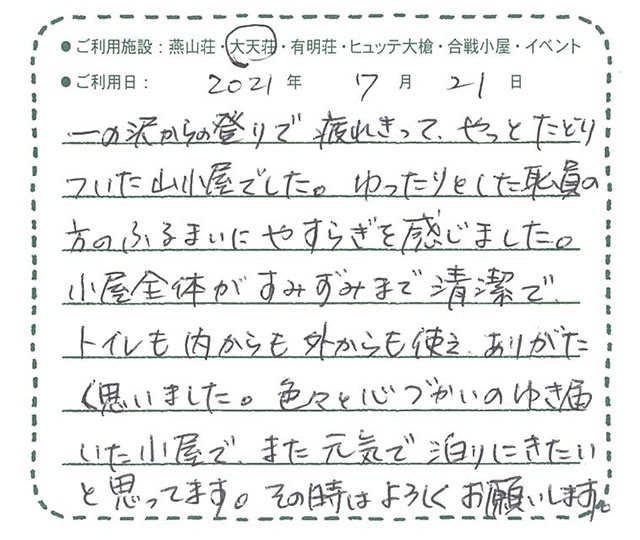 ●ご利用施設：燕山荘・大天荘・有明荘・ヒュッテ大槍・合戦小屋・イベント
●ご利用日： 2021 年 7 月 21 日
一の沢からの登りで 疲れきって、やっと たどり
ついた山小屋でした。ゆったりとした職員の
方のふるまいに やすらぎを感じました。
小屋全体が すみずみまで 清潔で、
トイレも 内からも 外からも 使え、ありがた
く思いました。色々と心づかいのゆき届
いた小屋で、また 元気で 泊りにきたい
と 思ってます。その時は よろしく お願いします。